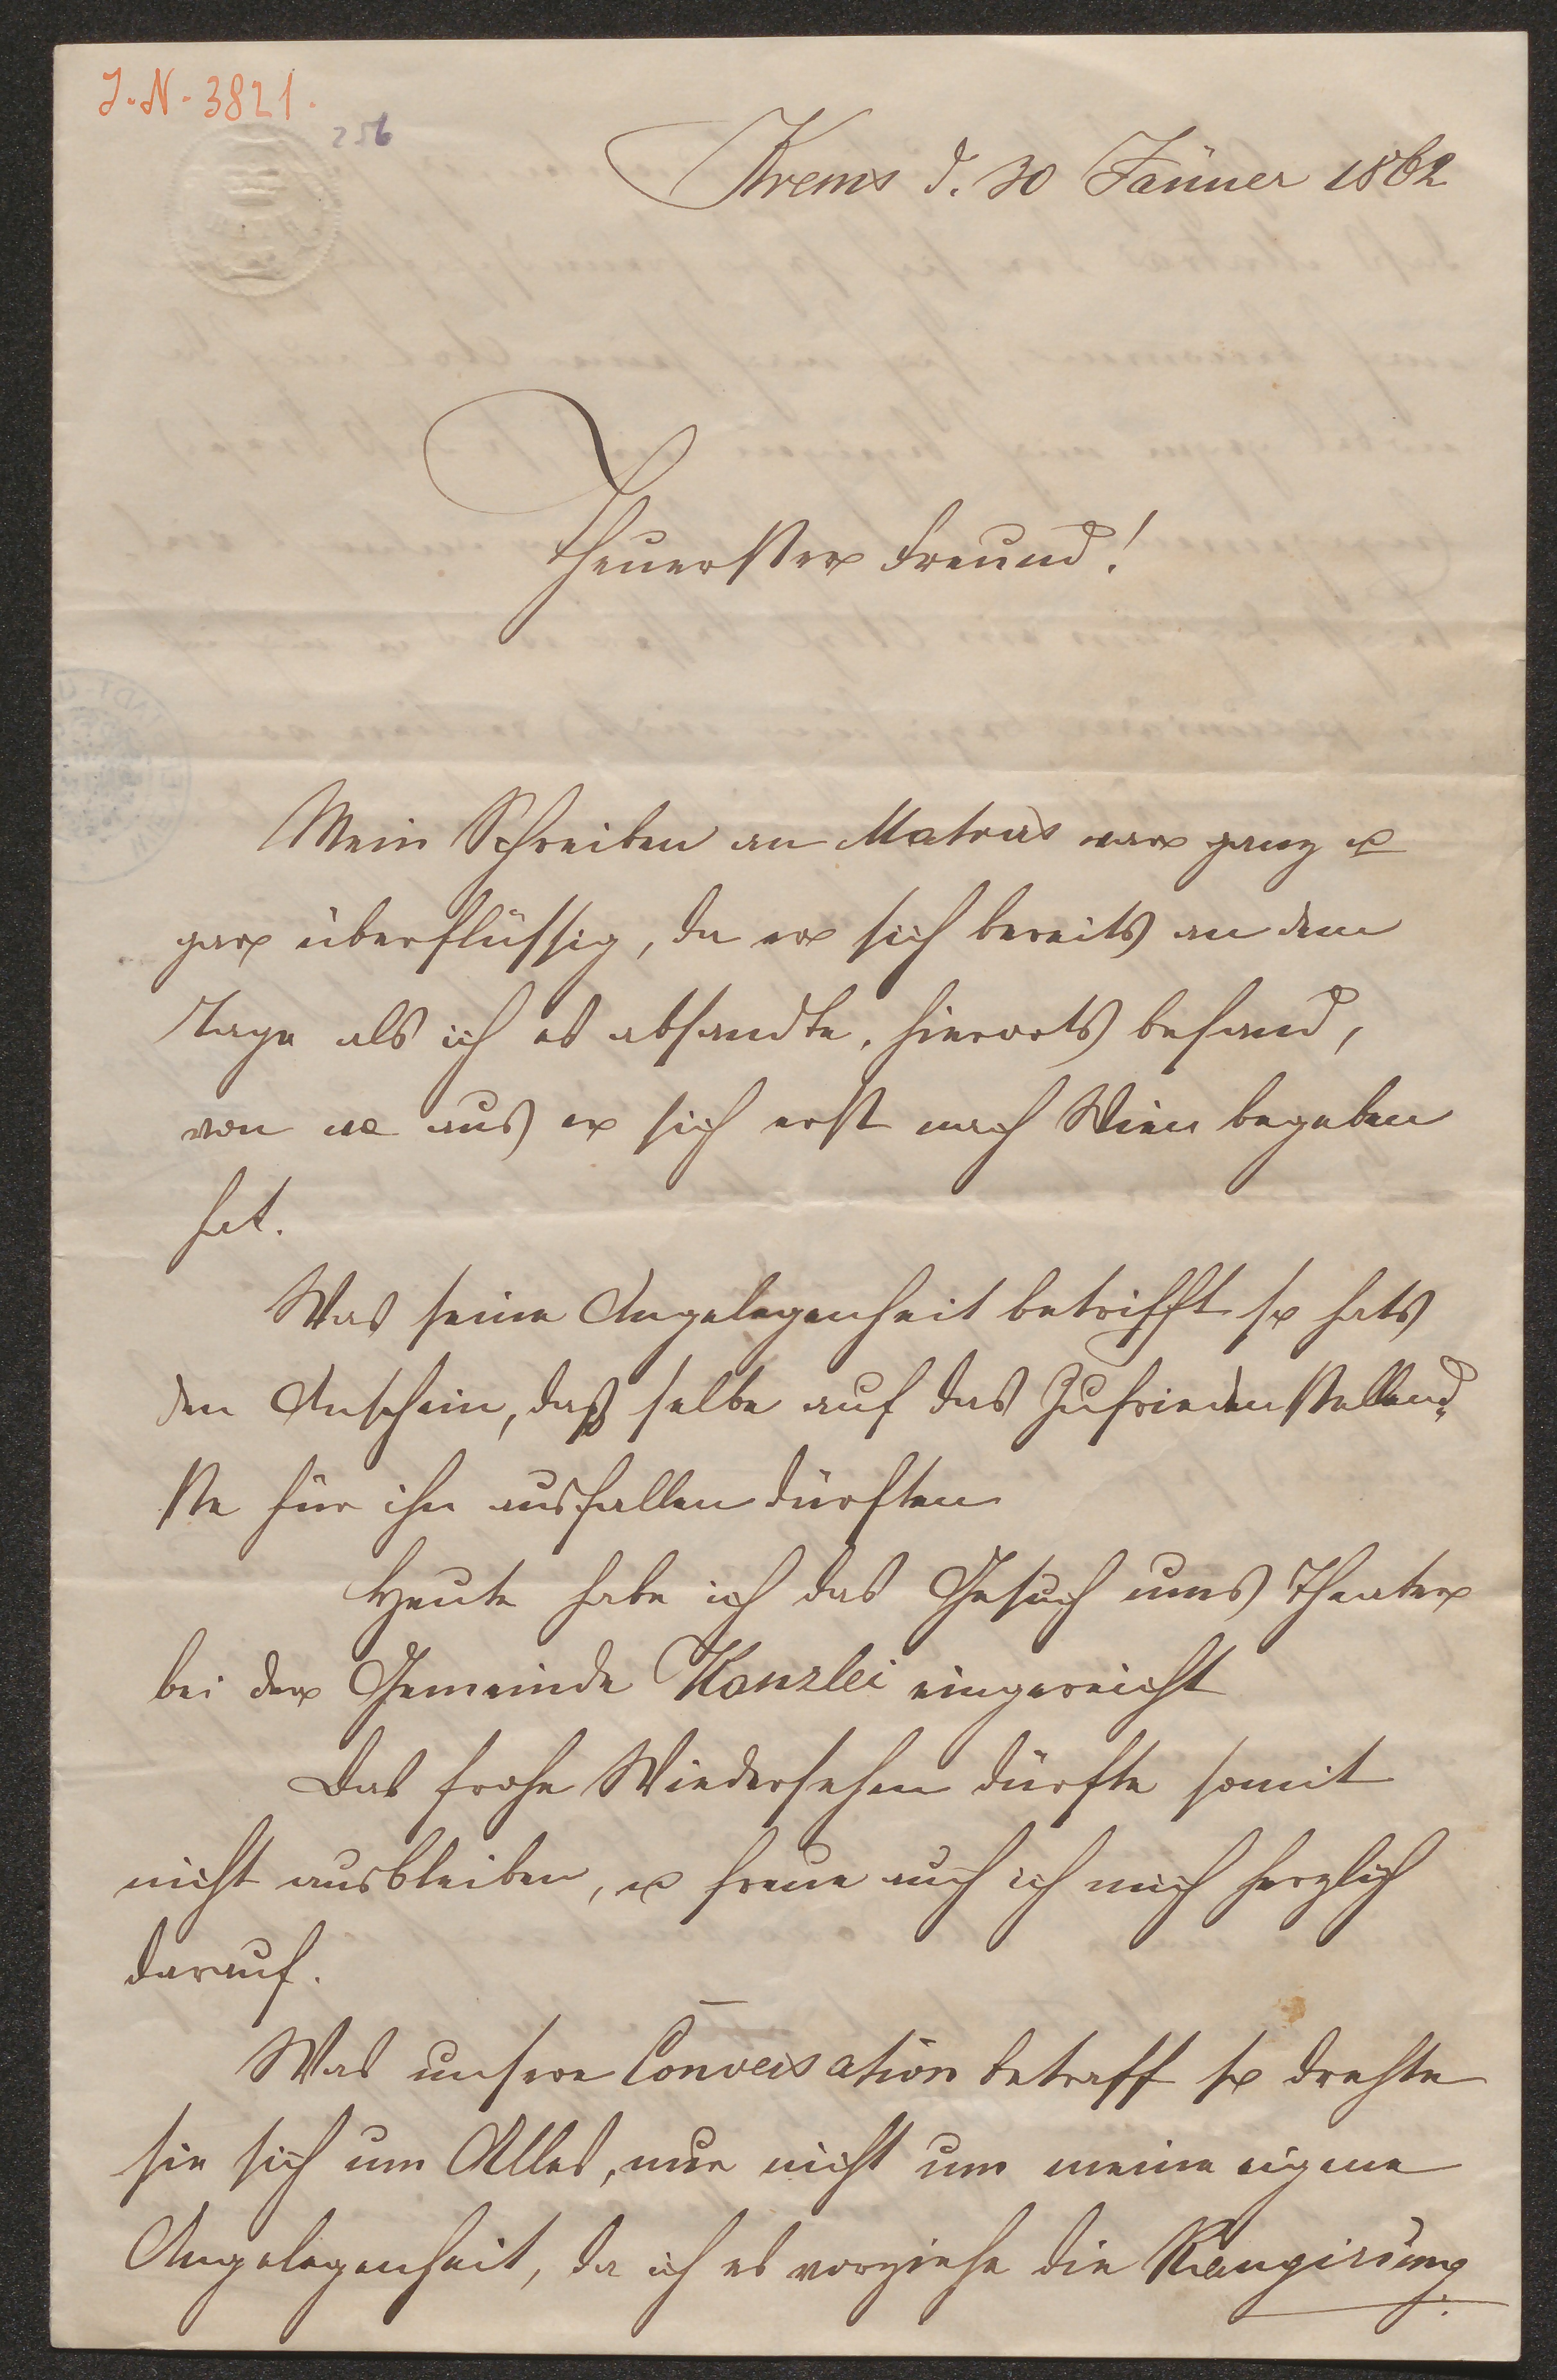 J. N. 3821.
256
Krems d. 30 Jänner 1862
Theuerster Freund!
Mein Schreiben an Matras war ganz u
gar überflüssig, da er sich bereits an dem
Tage als ich es absandte, hierorts befand,
von wo aus er sich erst nach Wien begeben
hat.
Was seine Angelegenheit betrifft so hats
den Anschein, daß selbe auf das Zufriedenstellend„
ste für ihn ausfallen dürften
Heute habe ich das Gesuch ums Theater
bei der Gemeinde Kanzlei eingereicht
Das frohe Wiedersehen dürfte somit
nicht ausbleiben, u freue auch ich mich herzlich
darauf.
Was unsere Conversation betraff so drehte
sie sich um Alles, nur nicht um meine eigene
Angelegenheit, da ich es vorziehe die Rangirung